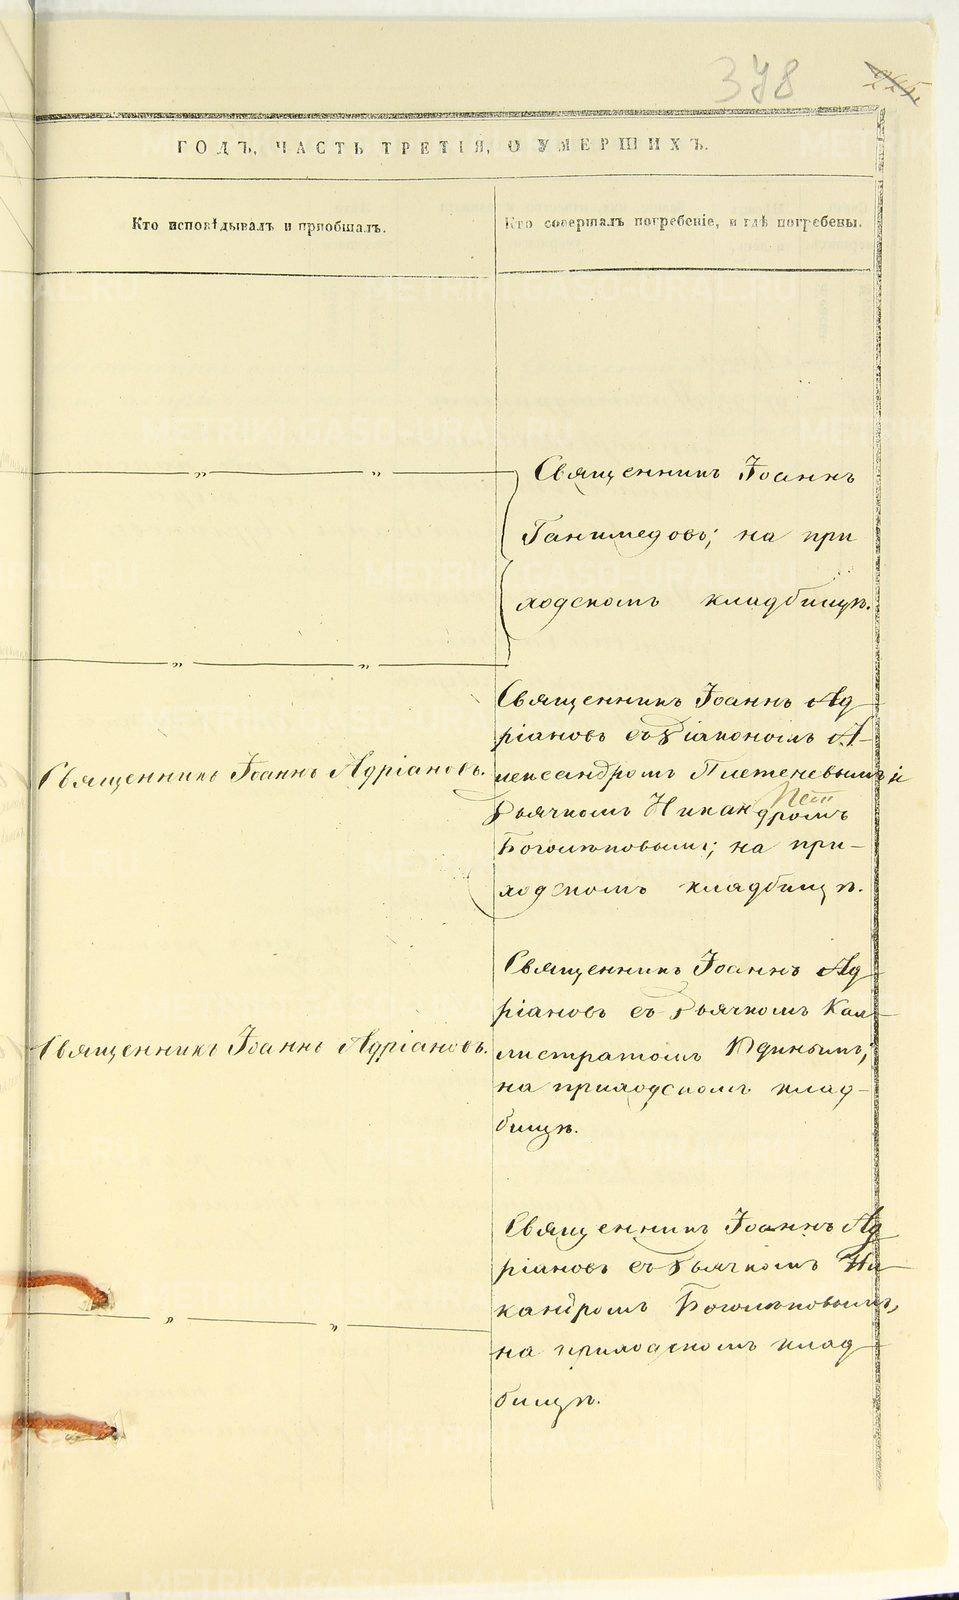 378
ГОДЪ, ЧАСТЬ ТРЕТІЯ, О УМЕРШИХЪ.
Кто исповѣдывалъ и пріобщалъ.
Кто совершалъ погребеніе, и гдѣ погребены.
Священникъ Іоаннъ
Ганимедовъ; на при
ходскомъ кладбищѣ.
Священникъ Іоаннъ Адріановъ.
Священникъ Іоаннъ Ад
ріановъ съ діакономъ А-
лександромъ Плетеневымъ и
дьячкомъ Никандромъ
Боголѣповымъ; на при-
ходскомъ кладбищѣ.
Священникъ Іоаннъ Адріановъ.
Священникъ Іоаннъ Ад
ріановъ съ дьячкомъ Кал
листратомъ Юдинымъ;
на приходскомъ клад-
бищѣ.
Священникъ Іоаннъ Ад
ріановъ съ дьячкомъ Ни
кандромъ Боголѣповымъ,
на приходскомъ клад
бищѣ.
METRIKI.GASO-URAL.RU